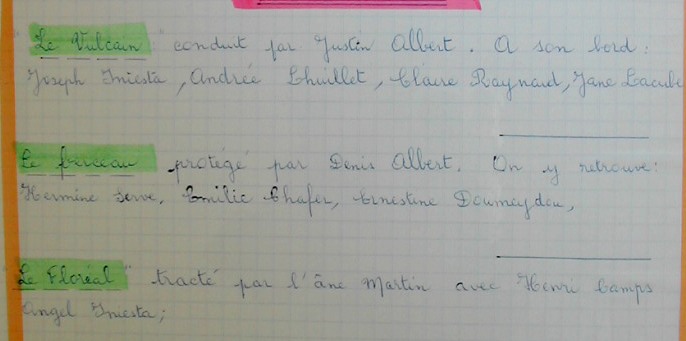 "Le Vulcain" conduit par Justin Albert. A son bord :
Joseph Iniesta, Andrée Lhuillet, Claire Raynaud, Jane Lacube
Le berceau protégé par Denis Albert. On y retrouve :
Hermine Serve, Emilie Chafer, Ernestine Doumeydou,
"Le Floréal" tracté par l'âne Martin avec Henri Camps
Angel Iniesta;